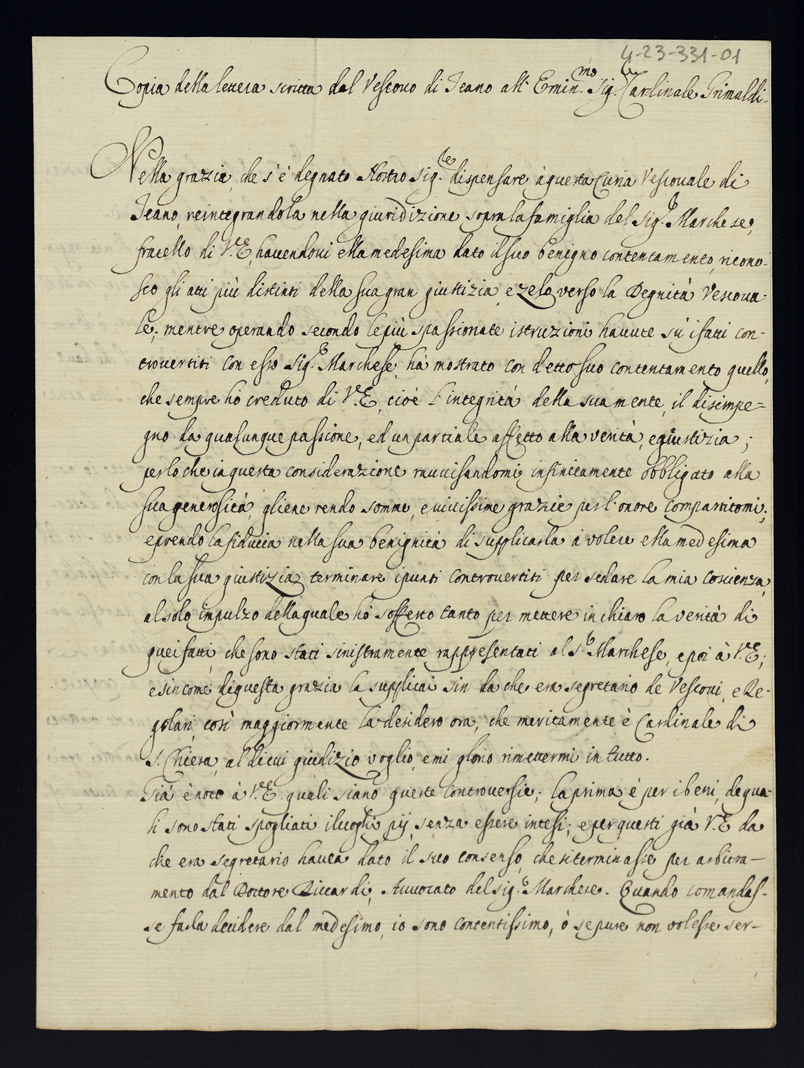 4-23-331-01
Copia della lettera scritta dal Vescovo di Teano all' Emin.mo Sig.r Cardinale Grimaldi.
Nella grazia, che s'è degnato Nostro Sig.re dispensare à questa Curia Vescovale di
Teano, reintegrandola nella giuridizione sopra la famiglia del Sig.r Marchese,
fratello di V.E., havendovi ella medesima dato il suo benigno contentamento, ricono-
sco gli atti più distinti della sua gran giustizia, e zelo verso la Degnità Vescova-
le; mentre operando secondo le più spassionate istruzioni havute sù i fatti con-
trovertiti con esso Sig.r Marchese, hà mostrato con detto suo contentamento quello,
che sempre hò creduto di V.E., cioè l'integrità della sua mente, il disimpe-
gno da qualunque passione, ed un parciale affetto alla verità, e giustizia;
perloche in questa considerazione ravvisandomi infinitamente obbligato alla
sua generosità, gliene rendo somme, e vivissime grazie per l'onore compartitomi,
e prendo la fiducia nella sua benignità di supplicarla à volere ella medesima
con la sua giustizia terminare i punti controvertiti per sedare la mia coscienza,
al solo impulzo della quale hò sofferto tanto per mettere in chiaro la verità di
quei fatti che sono stati sinistramente rappresentati al S.r Marchese, e poi à V.E.;
e sincome di questa grazia la supplicai sin da che era segretario de Vescovi, e Re-
golari, così maggiormente la desidero ora, che meritamente è Cardinale di
S. Chiesa, al di cui giudizio voglio, e mi glorio rimettermi in tutto.
Già è noto à V.E. quali siano queste controversie; la prima è per i beni, de qua-
li sono stati spogliati i luoghi pij, senza essere intesi; e per questi già V.E. da
che era segretario havea dato il suo consenso, che si terminasse per arbitra-
mento dal Dottore Riccardi, Avvocato del sig.r Marchese. Quando comandas-
se farla decidere dal medesimo, io sono contentissimo, ò se pure non volesse ser-